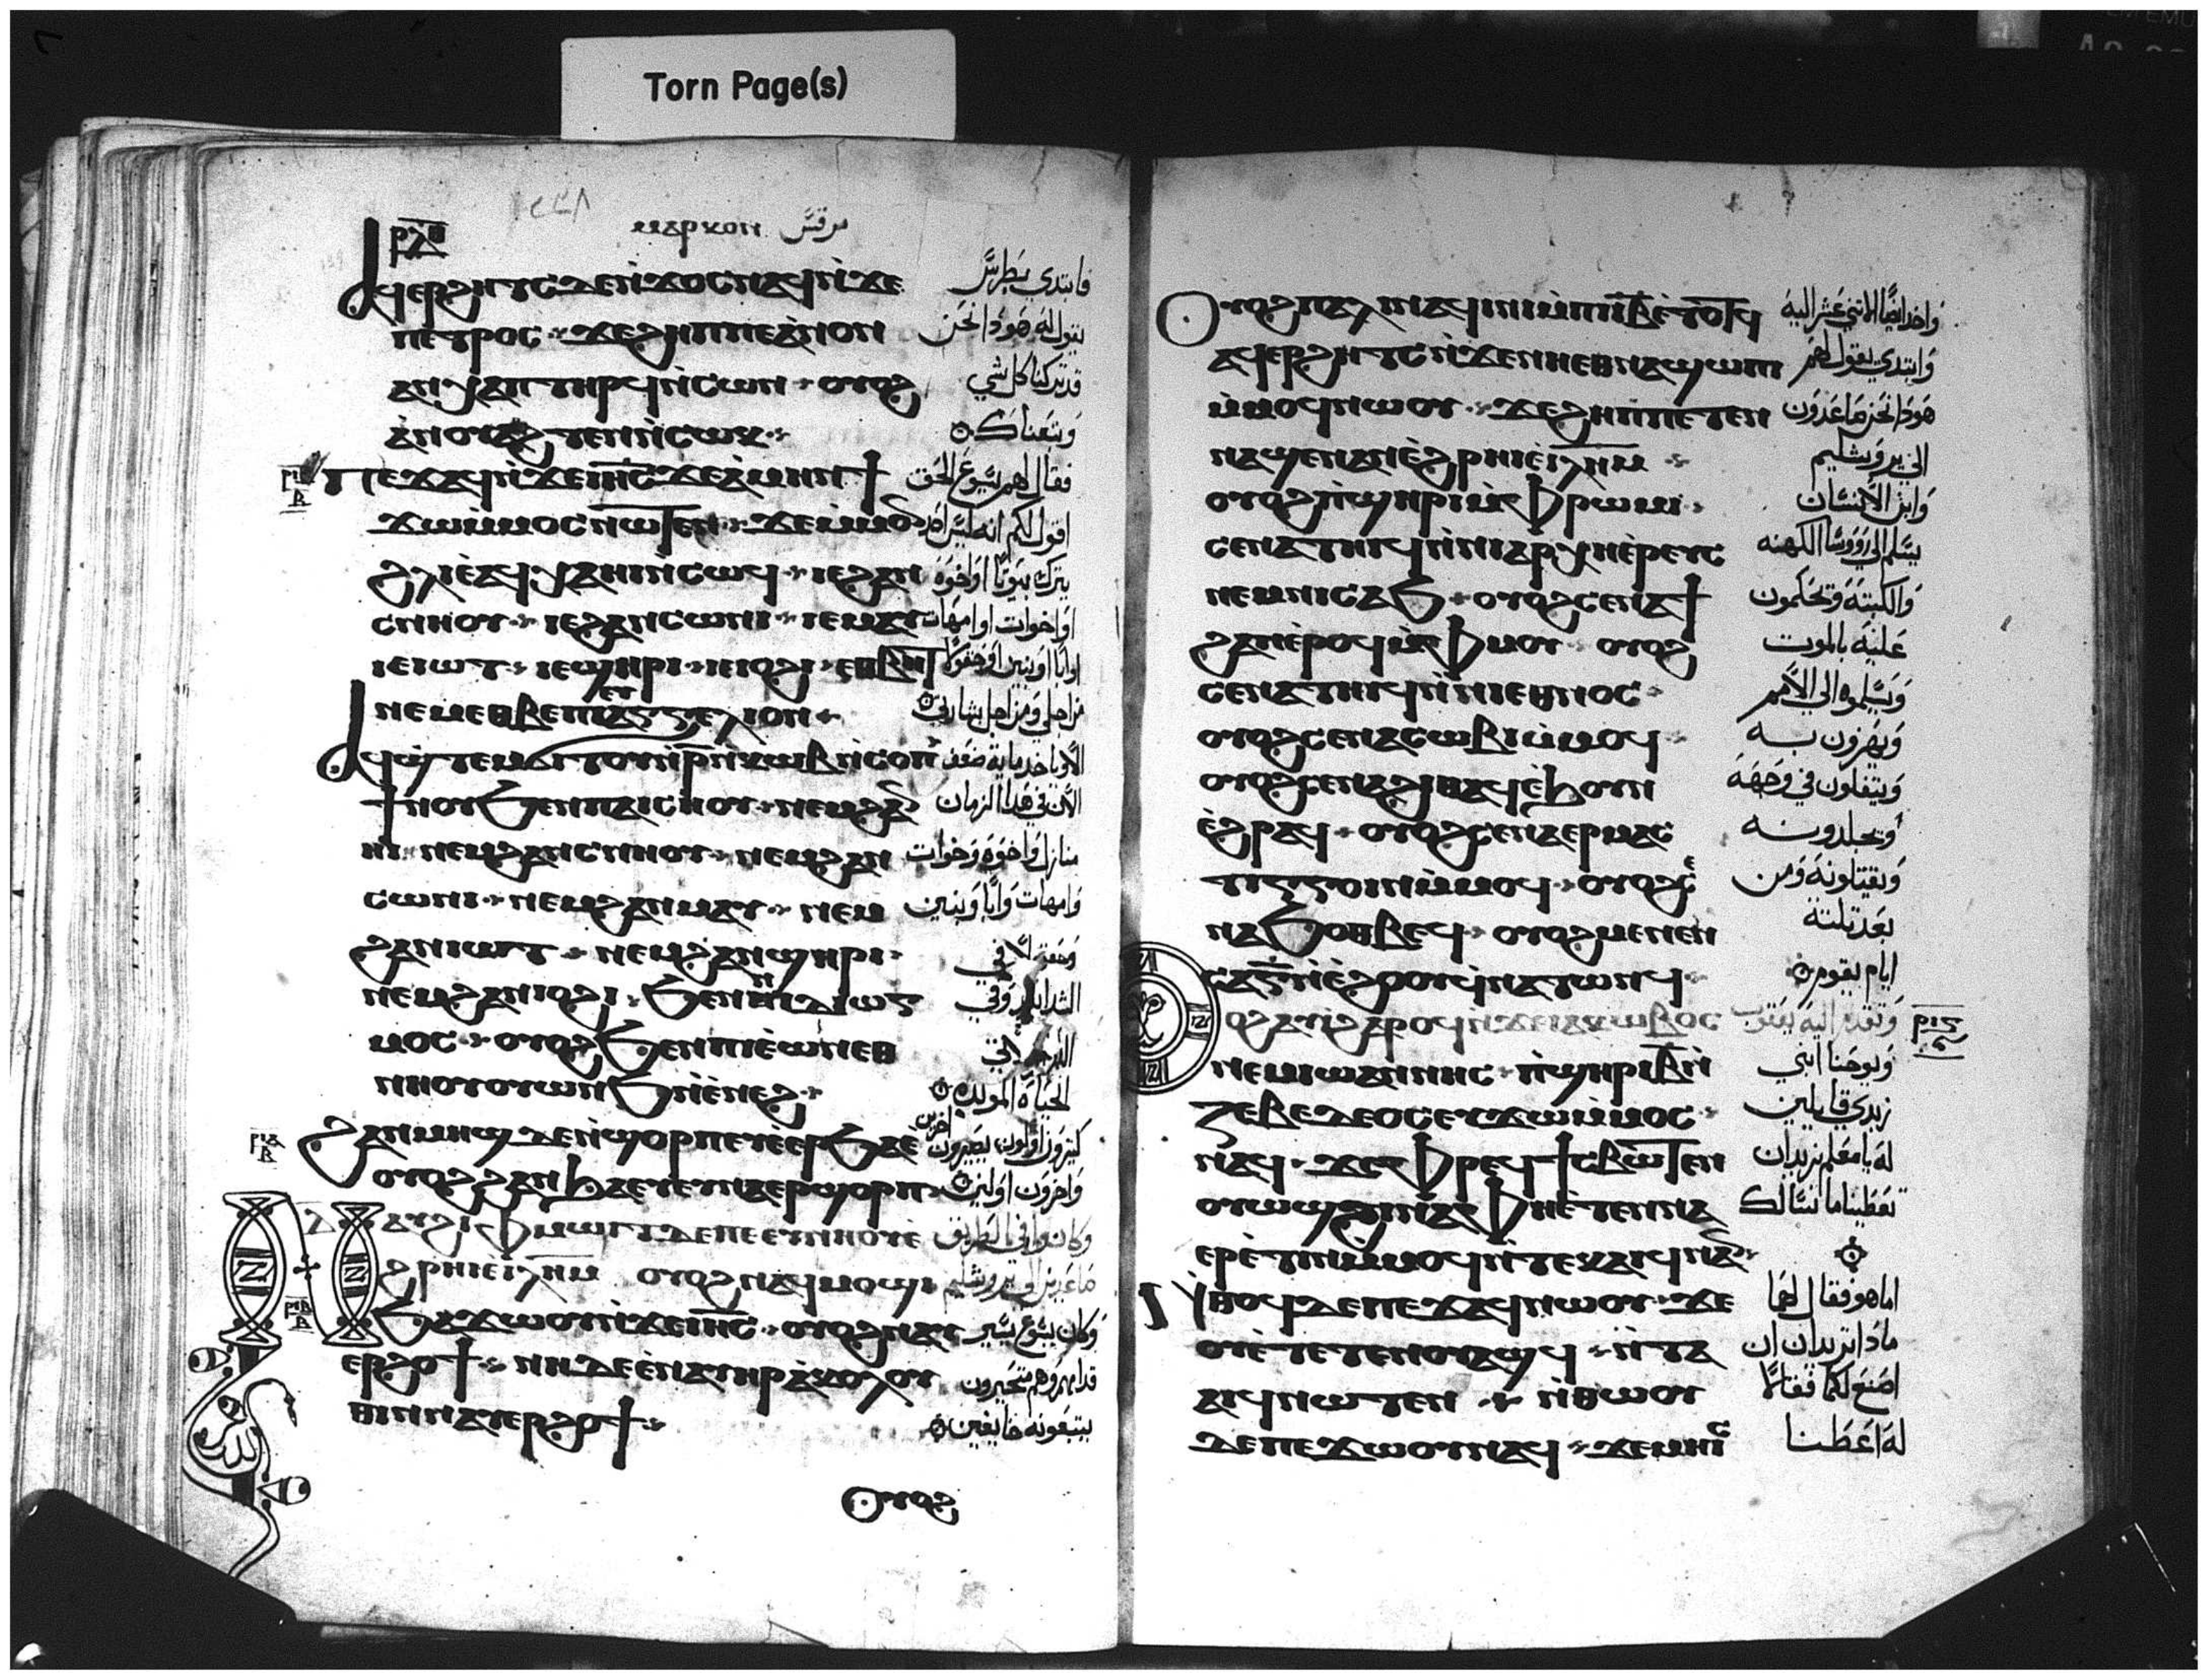 Torn Page(s)
ⲣⲗⲑ
ⲙⲁⲣⲕⲟⲛ مرقس
ⲁϥⲉⲣϩⲏⲧⲥ ⲇⲉ ⲛ̀ϫⲟⲥ ⲛⲁϥ ⲛ̀ϫⲉ فابتدي بطرس
ⲡⲉⲧⲣⲟⲥ ϫⲉ ϩⲏⲡⲡⲉ ⲁ̀ⲛⲟⲛ يقول له هودا نحن
ⲁⲛⲭⲁ ⲡⲧⲏⲣϥ ⲛ̀ⲥⲱⲛ ⲟⲩⲟϩ قد تركنا كل شي
ⲁ̀ⲛⲟⲩⲁϩⲧⲉⲛ ⲛ̀ⲥⲱⲕ وتبعناك
ⲡⲉϫⲁϥ ⲛ̀ϫⲉ ⲓⲏ̅ⲥ̅ ϫⲉ ⲁ̀ⲙⲏⲛ ϯ فقال لهم يسوع الحق
ϫⲱ ⲙ̀ⲙⲟⲥ ⲛⲱⲧⲉⲛ ϫⲉ ⲙ̀ⲙⲟⲛ اقول لكم انه ليس احد
ϩⲗⲓ ⲉ̀ⲁϥⲭⲁ ⲏⲓ ⲛ̀ⲥⲱϥ ⲓⲉ ϩⲁⲛ يترك بيوتا او اخوه
ⲥⲛⲏⲟⲩ ⲓⲉ ϩⲁⲛⲥⲱⲛⲓ ⲓⲉ ⲙⲁⲩ او اخوات او امهات
ⲓⲉ ⲓⲱⲧ ⲓⲉ ϣⲏⲣⲓ ⲓⲉ ⲓⲟϩⲓ ⲉⲑⲃⲏⲧ او ابا او بنين او حقولا
ⲛⲉⲙ ⲉⲑⲃⲉ ⲡⲓⲉⲩⲁⲅⲅⲉⲗⲓⲟⲛ من اجلي ومن اجل بشارتي
ⲁϥϣ̀ⲧⲉⲙϭⲓⲧⲟⲩ ⲛ̀ⲣ̅ ⲛ̀ⲕⲱⲃ ⲛ̀ⲥⲟⲡ الا وياخد ماية ضعف
ϯⲛⲟⲩ ϧⲉⲛ ⲡⲁⲓⲥⲏⲟⲩ ⲛⲉⲙ ϩⲁⲛ الان في هدا الزمان
ⲏⲓ ⲛⲉⲙ ϩⲁⲛⲥⲛⲏⲟⲩ ⲛⲉⲙ ϩⲁⲛ منازل واخوه واخوات
ⲥⲱⲛⲓ ⲛⲉⲙ ϩⲁⲛⲙⲁⲩ ⲛⲉⲙ وامهات وابا وبنين
ϩⲁⲛⲓⲱⲧ ⲛⲉⲙ ϩⲁⲛϣⲏⲣⲓ وحقولا في
ⲛⲉⲙ ϩⲁⲛⲓⲟϩⲓ ϧⲉⲛ ⲡⲓⲇⲓⲱⲅ وفي
ⲙⲟⲥ ⲟⲩⲟϩ ϧⲉⲛ ⲡⲓⲉ̀ⲱⲛ ⲉⲑ
ⲛⲏⲟⲩ ⲟⲩⲱⲛϧ ⲛ̀ⲉ̀ⲛⲉϩ الحياة الموبده
ϩⲁⲛⲙⲏϣ ⲇⲉ ⲛ̀ϣⲟⲣⲡ ⲉⲧⲉ̀ⲉⲣϧⲁⲉ̀ كثيرون اولون يصيرون اخرين
ⲟⲩⲟϩ ϩⲁⲛϧⲁⲉⲩ ⲉⲩⲛⲁⲉⲣϣⲟⲣⲡ واخرون اولين
ⲛⲁⲩϩⲓ ⲫⲙⲱⲓⲧ ⲇⲉ ⲡⲉ ⲉⲩⲛⲏⲟⲩ ⲉ̀ وكانوا في الطريق
ϩⲣⲏⲓ ⲉ̀ⲓⲗⲏⲙ ⲟⲩⲟϩ ⲛⲁϥⲙⲟϣⲓ صاعدين الي يروشليم
ϧⲁϫⲱⲟⲩ ⲛ̀ϫⲉ ⲓⲏ̅ⲥ̅ ⲟⲩⲟϩ ⲛⲁⲩ وكان يسوع يسير
ⲉⲣϩⲟϯ ⲛⲏ ⲇⲉ ⲉ̀ⲛⲁⲩⲏⲣ ⲁ̀ⲕⲟⲗⲟⲩ قدامهم وهم متحيرون
ⲑⲓⲛ ⲛⲁⲩⲉⲣϩⲟϯ يتبعونه خايفين
ⲟⲩⲟϩ
ⲟⲩⲟϩ ⲡⲁⲗⲓⲛ ⲁϥⲓⲛⲓ ⲙ̀ⲡⲓⲓ̅ⲃ̅ ⲉ̀ⲧⲟⲧϥ واخد ايضا الاثني عشر اليه
ⲁϥⲉⲣϩⲏⲧⲥ ⲛ̀ϫⲉ ⲛⲏ ⲉⲑⲛⲁϣⲱⲡⲓ وابتدي يقول لهم
ⲙ̀ⲙⲟϥ ⲛⲱⲟⲩ ϫⲉ ϩⲏⲡⲡⲉ ⲧⲉⲛ هودا نحن صاعدون
ⲛⲁϣⲉⲛⲁⲛ ⲉ̀ϩⲣⲏⲓ ⲉ̀ⲓⲗⲏⲙ الي يروشليم
ⲟⲩⲟϩ ⲡ̀ϣⲏⲣⲓ ⲙ̀ⲫⲣⲱⲙⲓ وابن الانسان
ⲥⲉⲛⲁⲧⲏⲓϥ ⲛ̀ⲛⲓⲁⲣⲭⲏⲉ̀ⲣⲉⲩⲥ يسلم الي رووسا الكهنه
ⲛⲉⲙ ⲛⲓⲥⲁϧ ⲟⲩⲟϩ ⲥⲉⲛⲁϯ والكتبة ويحكمون
ϩⲁⲡ ⲉ̀ⲣⲟϥ ⲙ̀ⲫⲙⲟⲩ ⲟⲩⲟϩ عليه بالموت
ⲥⲉⲛⲁⲧⲏⲓϥ ⲛ̀ⲛⲓⲉⲑⲛⲟⲥ ويسلموه الي الامم
ⲟⲩⲟϩ ⲥⲉⲛⲁⲥⲱⲃⲓ ⲙ̀ⲙⲟϥ ويهزون به
ⲟⲩⲟϩ ⲥⲉⲛⲁϩⲓⲑⲁϥ ⲉ̀ϧⲟⲩⲛ ويتفلون في وجهه
ⲉ̀ϩⲣⲁϥ ⲟⲩⲟϩ ⲥⲉⲛⲁⲉⲣⲙⲁⲥ ويجلدونه
ⲧⲓⲅⲅⲟⲓⲛ ⲙ̀ⲙⲟϥ ⲟⲩⲟϩ ⲥⲉ ويقتلونه ومن
ⲛⲁϧⲟⲑⲃⲉϥ ⲟⲩⲟϩ ⲙⲉⲛⲉⲛ بعد تلتة
ⲥⲁ ⲅ̅ ⲛ̀ⲉ̀ϩⲟⲟⲩ ϥⲛⲁⲧⲱⲛϥ ايام يقوم
ⲟⲩⲟϩ ⲁⲩⲓ̀ ϩⲁⲣⲟϥ ⲛ̀ϫⲉ ⲓⲁⲕⲱⲃⲟⲥ وتقدم اليه يعقوب ⲣⲓⲅ
ⲛⲉⲙ ⲓⲱⲁⲛⲛⲏⲥ ⲡ̀ϣⲏⲣⲓ ⲃ̅ ⲛ̀ ويوحنا ابني
ⲍⲉⲃⲉⲇⲉⲟⲥ ⲉⲩϫⲱ ⲙ̀ⲙⲟⲥ زبدي قايلين
ⲛⲁϥ ϫⲉ ⲫⲣⲉϥϯⲥⲃⲱ ⲧⲉⲛ له يا معلم نريد ان
ⲟⲩⲱϣ ϩⲓⲛⲁ ⲫⲏ ⲉ̀ⲧⲉⲛⲛⲁ تعطينا ما نسالك
ⲉⲣⲉ̀ⲧⲓⲛ ⲙ̀ⲙⲟϥ ⲛ̀ⲧⲉⲕⲁⲓϥ ⲛⲁⲛ
ⲛ̀ⲑⲟϥ ⲇⲉ ⲡⲉϫⲁϥ ⲛⲱⲟⲩ ϫⲉ اما هو فقال لهما
ⲟⲩ ⲉ̀ⲧⲉⲧⲉⲛⲟⲩⲁϣϥ ⲛ̀ⲧⲁ مادا تريدان ان
ⲁⲓϥ ⲛⲱⲧⲉⲛ ⲛ̀ⲑⲱⲟⲩ اصنع لكما فقالا
ⲇⲉ ⲡⲉϫⲱⲟⲩ ⲛⲁϥ ϫⲉ ⲙⲏⲓⲥ له اعطنا